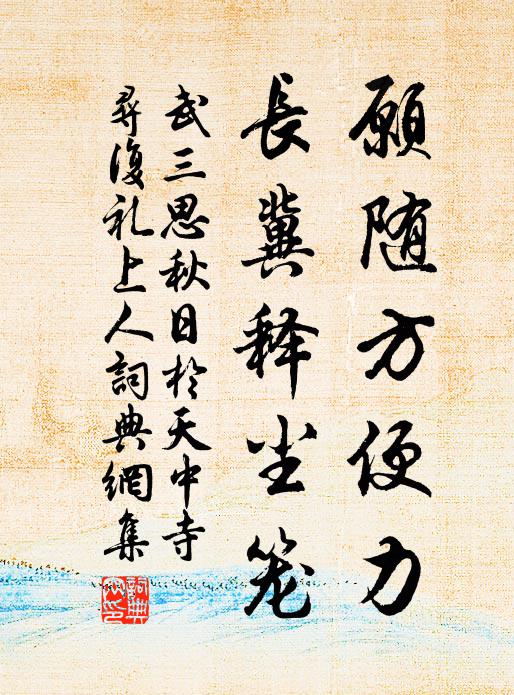 願随方便力
長冀释尘笼
武三思秋日於天中寺
尋復礼上人詞典網集